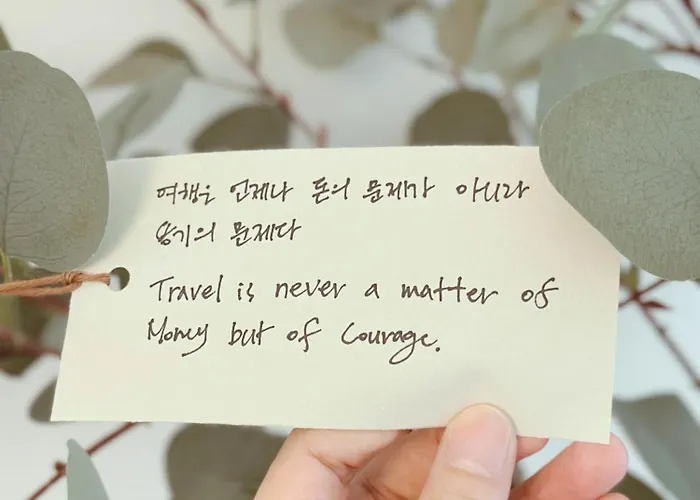 여행은 언제나 돈의 문제가 아니라
용기의 문제다
Travel is never a matter of
Money but of Courage.